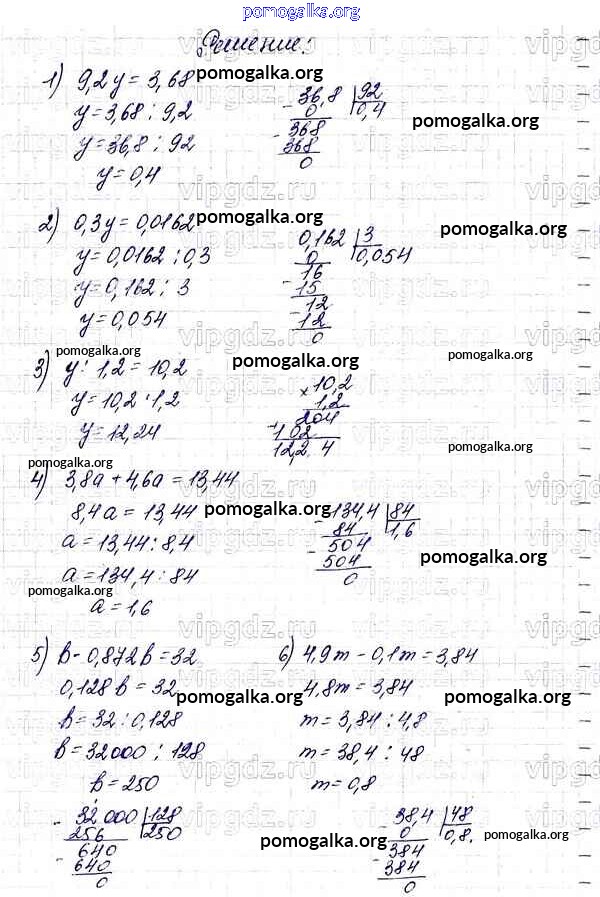 pomogalka.org
Решение:
1) 9,2y = 3,68 pomogalka.org
y = 3,68 : 9,2
y = 36,8 : 92
y = 0,4
36,8 | 92
0 | 0,4
368
368
0
pomogalka.org
2) 0,3y = 0,0162 pomogalka.org
y = 0,0162 : 0,3
y = 0,162 : 3
y = 0,054
0,162 | 3
0 | 0,054
16
15
12
12
0
pomogalka.org
pomogalka.org
3) y : 1,2 = 10,2
y = 10,2 · 1,2
y = 12,24
pomogalka.org
× 10,2
1,2
204
+ 102
12,24
pomogalka.org
pomogalka.org
pomogalka.org
4) 3,8a + 4,6a = 13,44
8,4a = 13,44 pomogalka.org
a = 13,44 : 8,4
a = 134,4 : 84
a = 1,6
134,4 | 84
84 | 1,6
504
504
0
pomogalka.org
pomogalka.org
pomogalka.org
5) b - 0,872b = 32
0,128b = 32
b = 32 : 0,128
b = 32000 : 128
b = 250
32000 | 128
256 | 250
640
640
0
pomogalka.org
6) 4,9m - 0,1m = 3,84
4,8m = 3,84
m = 3,84 : 4,8
m = 38,4 : 48
m = 0,8
38,4 | 48
0 | 0,8.
384
384
0
pomogalka.org
pomogalka.org
pomogalka.org
vipgdz.ru
vipgdz.ru
vipgdz.ru
vipgdz.ru
vipgdz.ru
vipgdz.ru
vipgdz.ru
vipgdz.ru
vipgdz.ru
vipgdz.ru
vipgdz.ru
vipgdz.ru